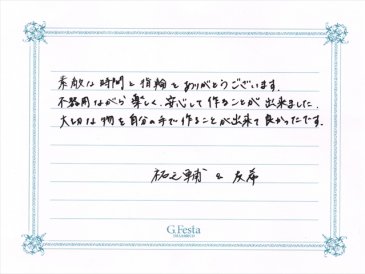 素敵な時間と指輪をありがとうございます。
不器用ながら楽しく、安心して作ることが出来ました。
大切な物を自分の手で作ることが出来て良かったです。
G.Festa